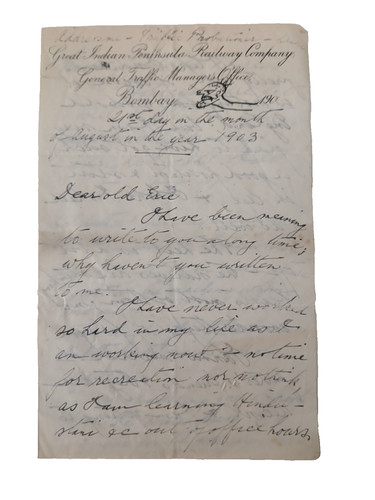 Great Indian Peninsula Railway Company
General Traffic Manager's Office
Bombay 190
21st day in the month
of August in the year 1903
Dear old Eric
I have been meaning
to write to you a long time;
why haven't you written
to me.
I have never worked
so hard in my life as I
am working now; no time
for recreation nor nothink
as I am learning Hindu-
stani &c out of office hours,